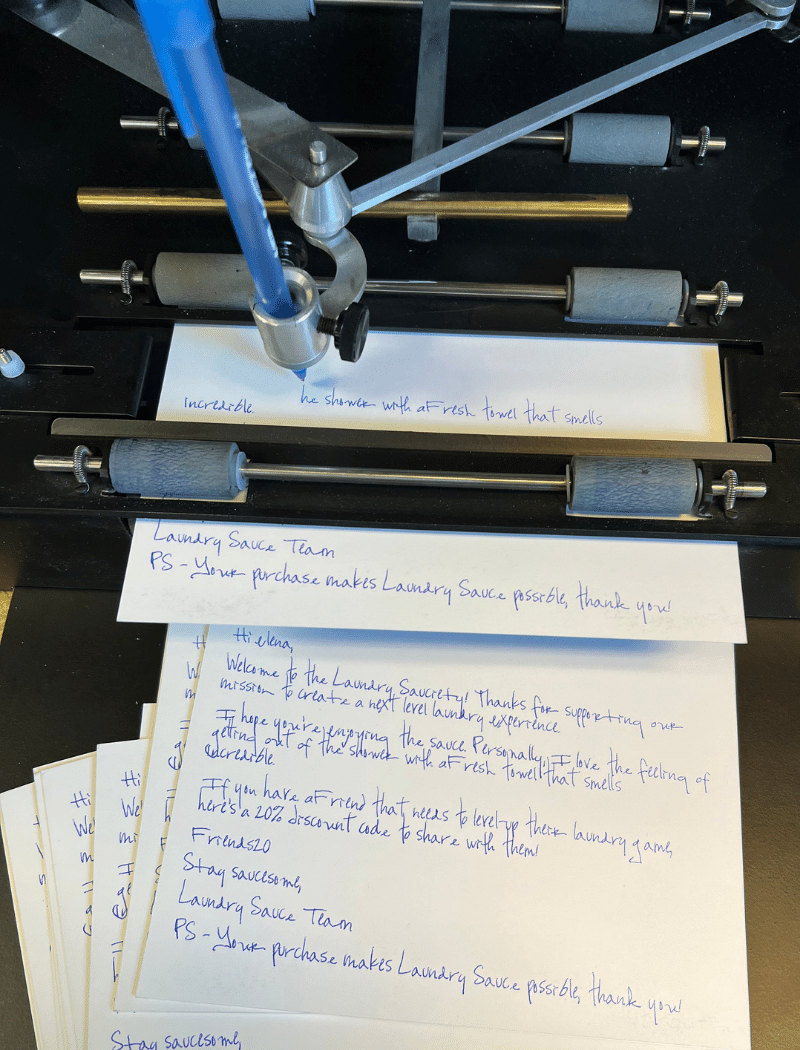 incredible he shower with a Fresh towel that smells
Laundry Sauce Team
PS - Your purchase makes Laundry Sauce possible, thank you!
Hi elena,
Welcome to the Laundry Sauciety! Thanks for supporting our
mission to create a next level laundry experience.
I hope you're enjoying the sauce. Personally, I love the feeling of
getting out of the shower with a Fresh towel that smells
incredible
If you have a Friend that needs to level-up their laundry game,
here's a 20% discount code to share with them!
Friends20
Stay saucesome,
Laundry Sauce Team
PS - Your purchase makes Laundry Sauce possible, thank you!
Hi
We
mi
Hi
We
m
Stay saucesome,